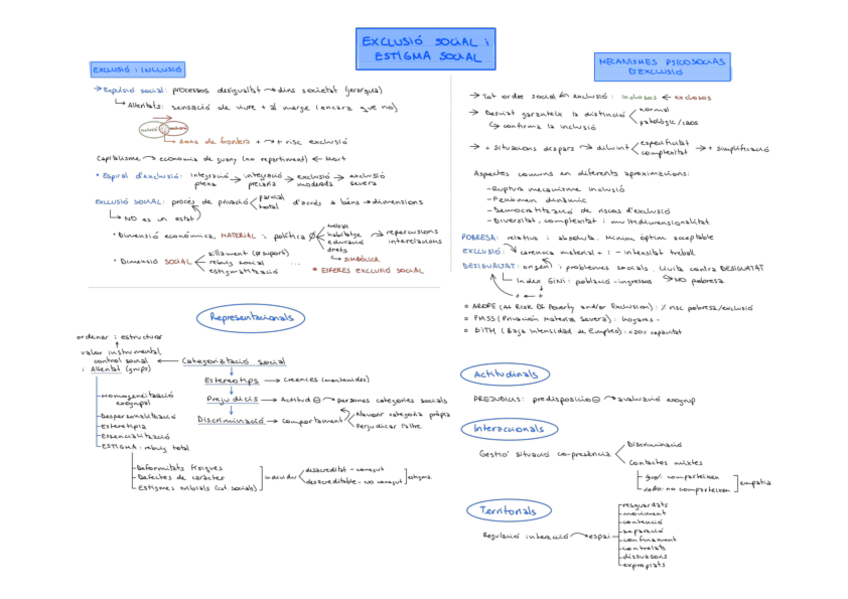 EXCLUSIÓ SOCIAL i
ESTIGMA SOCIAL
EXCLUSIÓ i INCLUSIÓ
→ Expulsió social: processos desigualtat → dins societat (jerarquia)
↳ Alteritats: sensació de viure + al marge (encara que no)
inclusió exclusió
↳ sense de frontera + → + risc exclusió
Capitalisme → economia de guany (no repartiment) ← Mort
• Espiral d'exclusió: integració plena → integració precària → exclusió moderada → exclusió severa
EXCLUSIÓ SOCIAL: procés de privació < parcial total d'accés a béns → dimensions
↳ NO és un estat
• Dimensió econòmica, MATERIAL i política
habitatge
educació
drets
→ repercussions interrelacions
↳ SIMBÒLICA
• Dimensió SOCIAL
Aïllament (Ø suport)
rebuig social ...
estigmatització
* ESFERES EXCLUSIÓ SOCIAL
MECANISMES PSICOSOCIALS
D'EXCLUSIÓ
→ Tot ordre social ← exclusió: inclosos ← exclosos
→ Desviat garanteix la distinció < normal
patològic/caos
↳ confirma la inclusió
→ + situacions dispars → diluint < especificitat
complexitat → + simplificació
Aspectes comuns en diferents aproximacions:
- Ruptura mecanisme inclusió
- Fenomen dinàmic
- Democratització de riscos d'exclusió
- Diversitat, complexitat i multidimensionalitat.
POBRESA: relativa i absoluta. Mínim òptim acceptable
EXCLUSIÓ: carència material + : - intensitat treball
DESIGUALTAT: origen i problemes socials. Lluita contra DESIGUALTAT
↳ Índex GINI: població - ingressos ↳ NO pobresa
+ ← → +
• AROPE (At Risk Of Poverty and/or Exclusion): % risc pobresa/exclusió
• PMSS (Privación Material Severa): hogares -
• BITH (Baja Intensidad de Empleo): <20% capacitat
Representacionals
ordenar i estructurar
valor instrumental,
control social
i Alteritat (grups)
← Categorització social
Estereotips → Creences (montenides)
Prejudicis → Actitud ⊖ → persones categories socials
Discriminació → comportament < Afavorir categoria pròpia
Perjudicar l'altre.
- Homogeneïtzació
exogrupal
- Despersonalització
- Estereotipia
- Essencialització
- ESTIGMA: rebuig total
- Deformitats físiques
- Defectes de caràcter
- Estigmes tribals (col. socials)
individu < desacreditat - conegut
desacreditable - no conegut
estigma
Actitudinals
PREJUDICIS: predisposició ⊖ → avaluació exogrup
Interaccionals
Gestió situació co-presència < Discriminació
Contactes mixtes
comparteixen
no comparteixen
empatia
Territorials
Regulació interacció → espai
resguardats
moviment
contenció
separació
confinament
controlats
dissuasoris
expropiats